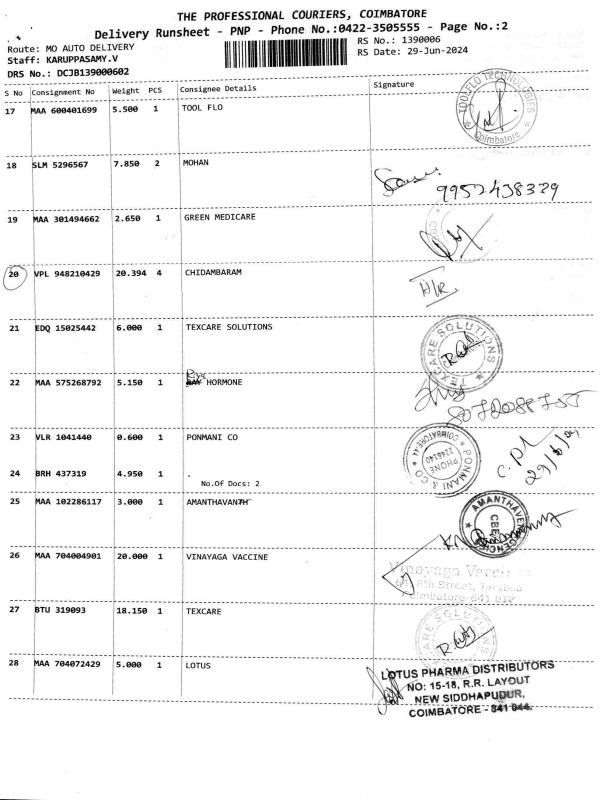 THE PROFESSIONAL COURIERS, COIMBATORE
Delivery Runsheet - PNP - Phone No.:0422-3505555 - Page No.:2
Route: MO AUTO DELIVERY
RS No.: 1390006
Staff: KARUPPASAMY.V
RS Date: 29-Jun-2024
DRS No.: DCJB139000602
S No Consignment No Weight PCS Consignee Details Signature
17 MAA 600401699 5.500 1 TOOL FLO
TOOL FLO TECHNOLOGIES
Coimbatore
18 SLM 5296567 7.850 2 MOHAN
9952438329
19 MAA 301494662 2.650 1 GREEN MEDICARE
20 VPL 948210429 20.394 4 CHIDAMBARAM
21 EDQ 15025442 6.000 1 TEXCARE SOLUTIONS
TEXCARE SOLUTIONS
22 MAA 575268792 5.150 1 HORMONE
23 VLR 1041440 0.600 1 PONMANI CO
PONMANI & CO
COIMBATORE-44
PHONE
2246140
29/6/24
24 BRH 437319 4.950 1 .
No.Of Docs: 2
25 MAA 102286117 3.000 1 AMANTHAVANTH
26 MAA 704004901 20.000 1 VINAYAGA VACCINE
Vinayaga
Street,
Coimbatore-641 012
27 BTU 319093 18.150 1 TEXCARE
CARE SOLUTIONS
28 MAA 704072429 5.000 1 LOTUS
LOTUS PHARMA DISTRIBUTORS
NO: 15-18, R.R. LAYOUT
NEW SIDDHAPUDUR,
COIMBATORE - 641 044.